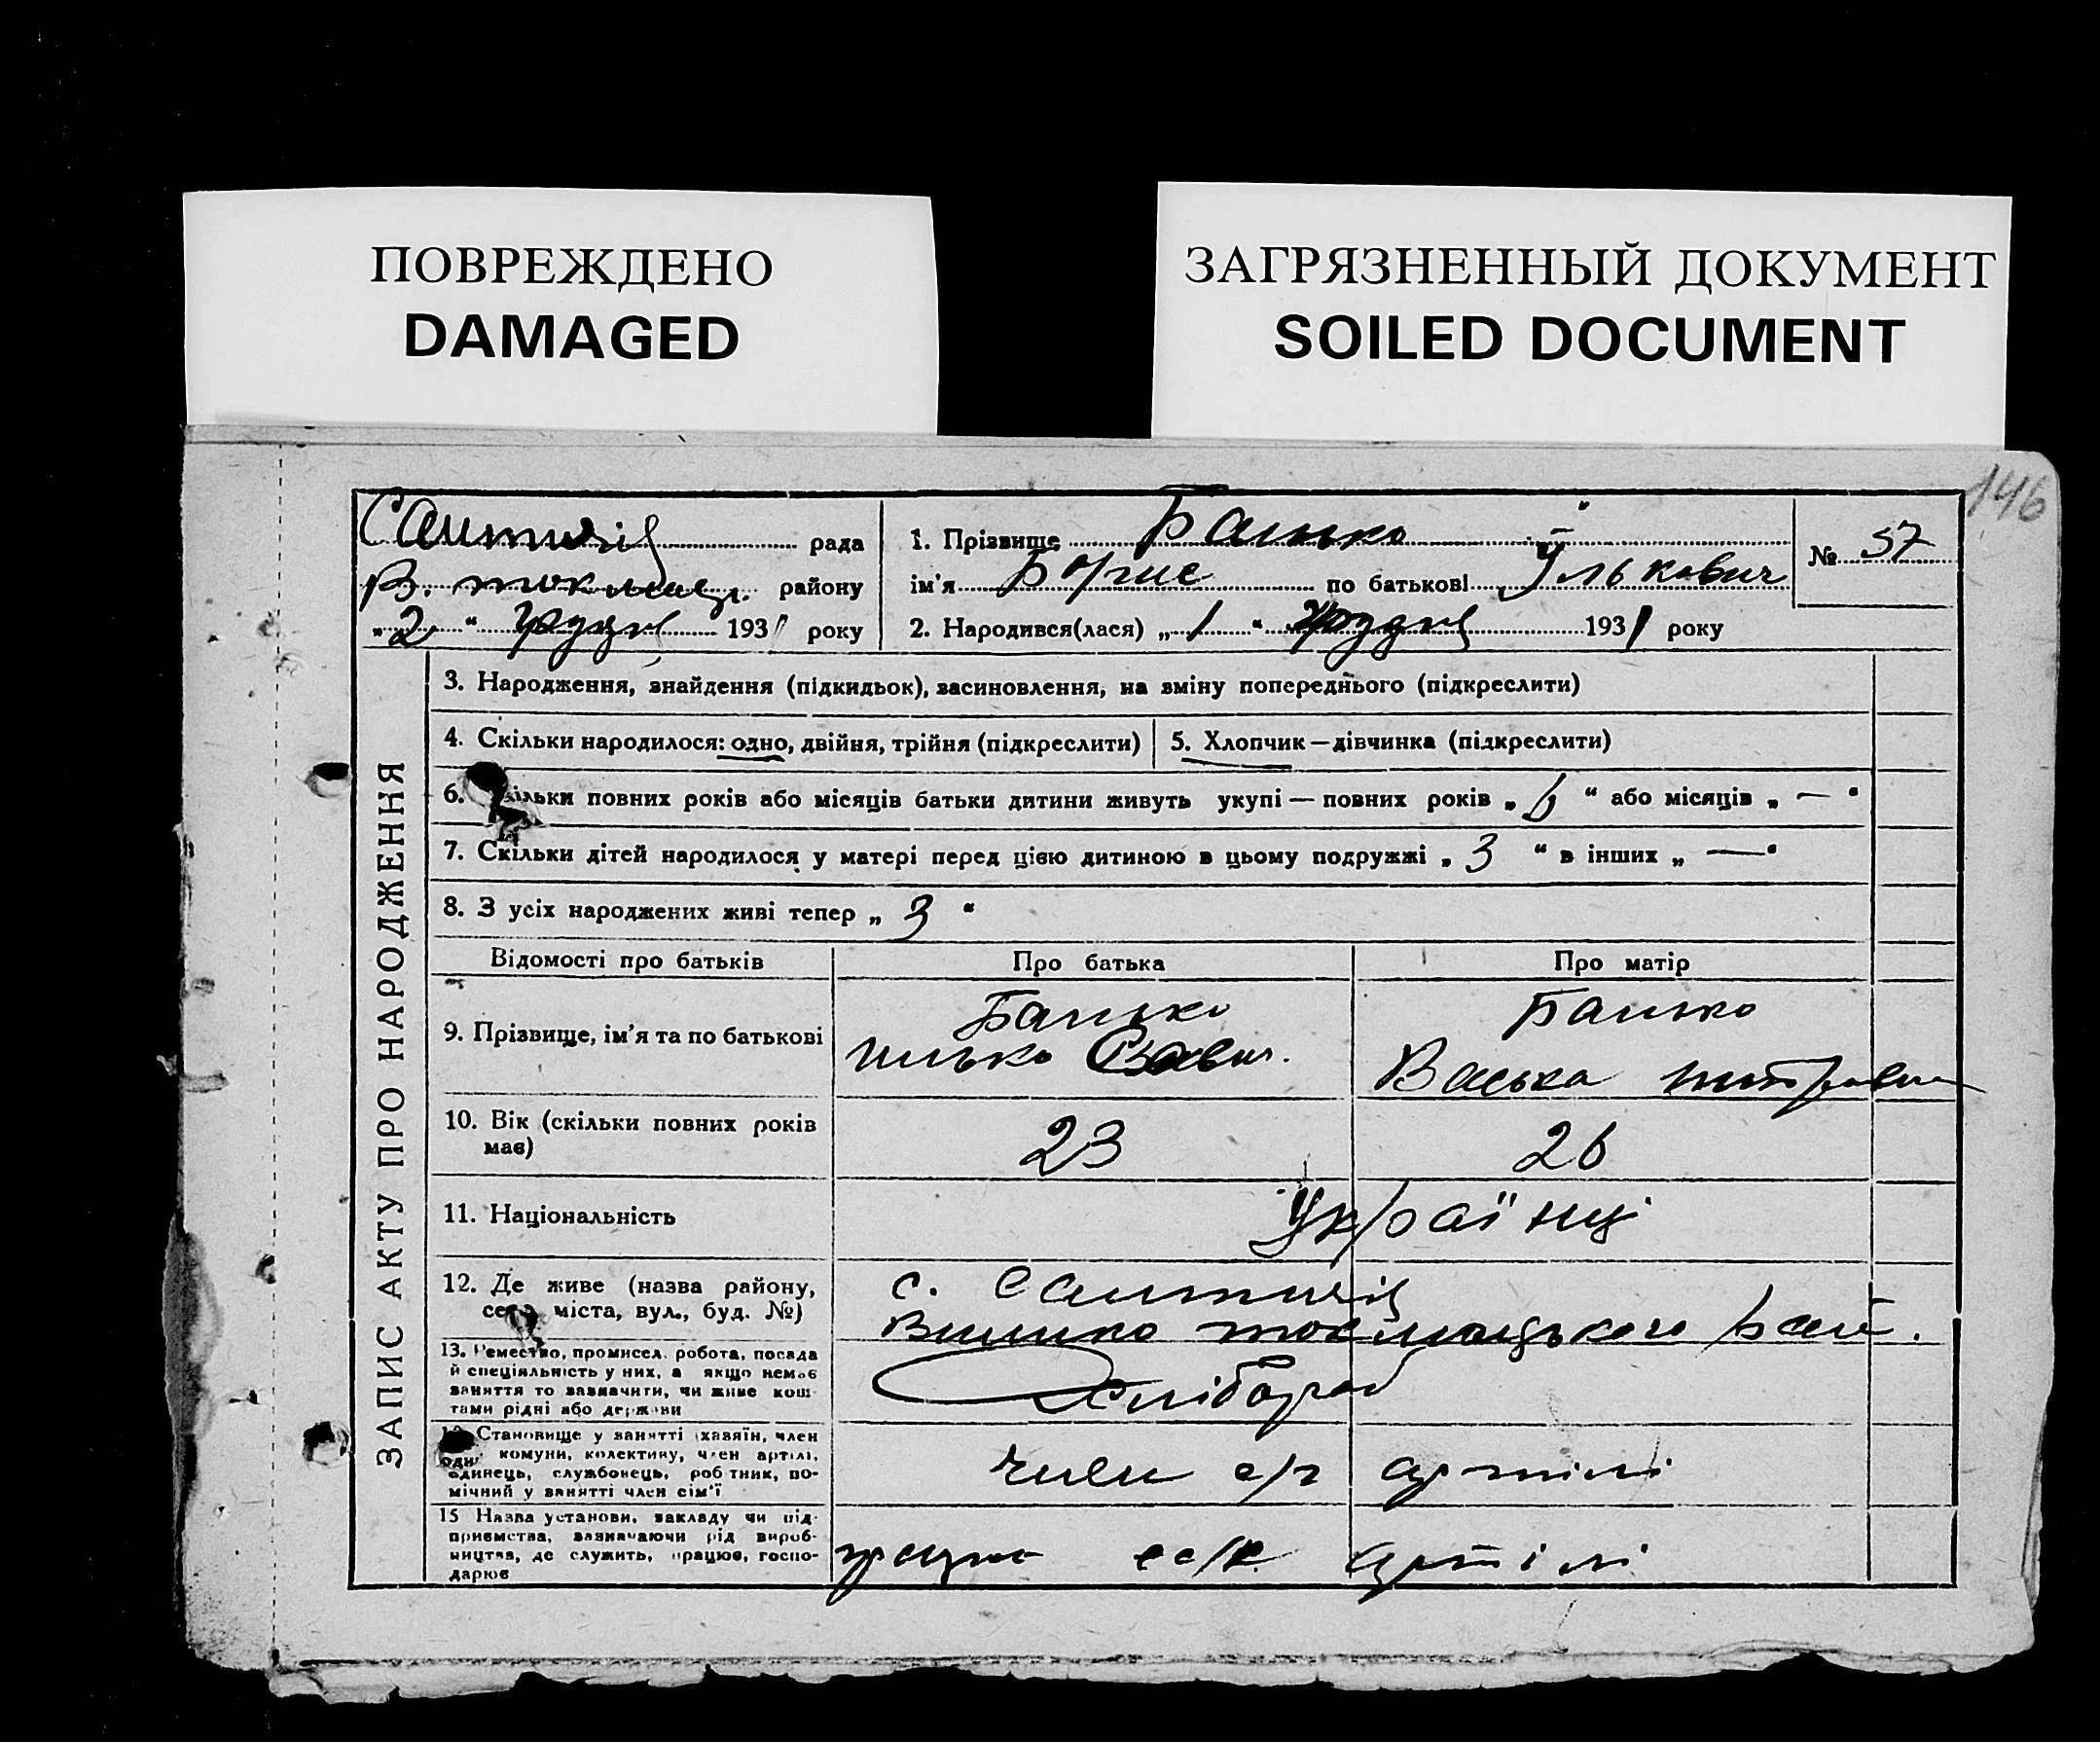 ПОВРЕЖДЕНО
DAMAGED
ЗАГРЯЗНЕННЫЙ ДОКУМЕНТ
SOILED DOCUMENT
146
рада
В. токмац. району
„ 2 “ грудня 1931 року
1. Прізвище Банько
ім'я Борис по батькові Ількович
2. Народився(лася) „ 1 “ грудня 1931 року
№ 57
ЗАПИС АКТУ ПРО НАРОДЖЕННЯ
3. Народження, знайдення (підкидьок), засиновлення, на зміну попереднього (підкреслити)
4. Скільки народилося: одно, двійня, трійня (підкреслити)
5. Хлопчик — дівчинка (підкреслити)
6. Скільки повних років або місяців батьки дитини живуть укупі — повних років „ 6 “ або місяців „ — “
7. Скільки дітей народилося у матері перед цією дитиною в цьому подружжі „ 3 “ в інших „ — “
8. З усіх народжених живі тепер „ 3 “
Відомості про батьків
Про батька
Про матір
9. Прізвище, ім'я та по батькові
Банько
Илько
Банько
Васька
10. Вік (скільки повних років
має)
23
26
11. Національність
Українці
12. Де живе (назва району,
села, міста, вул., буд. №)
с.
Велико токмацького рай.
13. Ремество, промисел, робота, посада
й спеціяльність у них, а якщо немає
заняття то зазначити, чи живе кош-
тами рідні або держави
Хлібороб
Становище у занятті (хазяїн, член
комуни, колективу, член артілі,
одинець, службовець, робітник, по-
мічний у занятті член сім'ї
член с/г артілі
15 Назва установи, закладу чи під-
приємства, зазначаючи рід вироб-
ництва, де служить, працює, госпо-
дарює
працює артілі